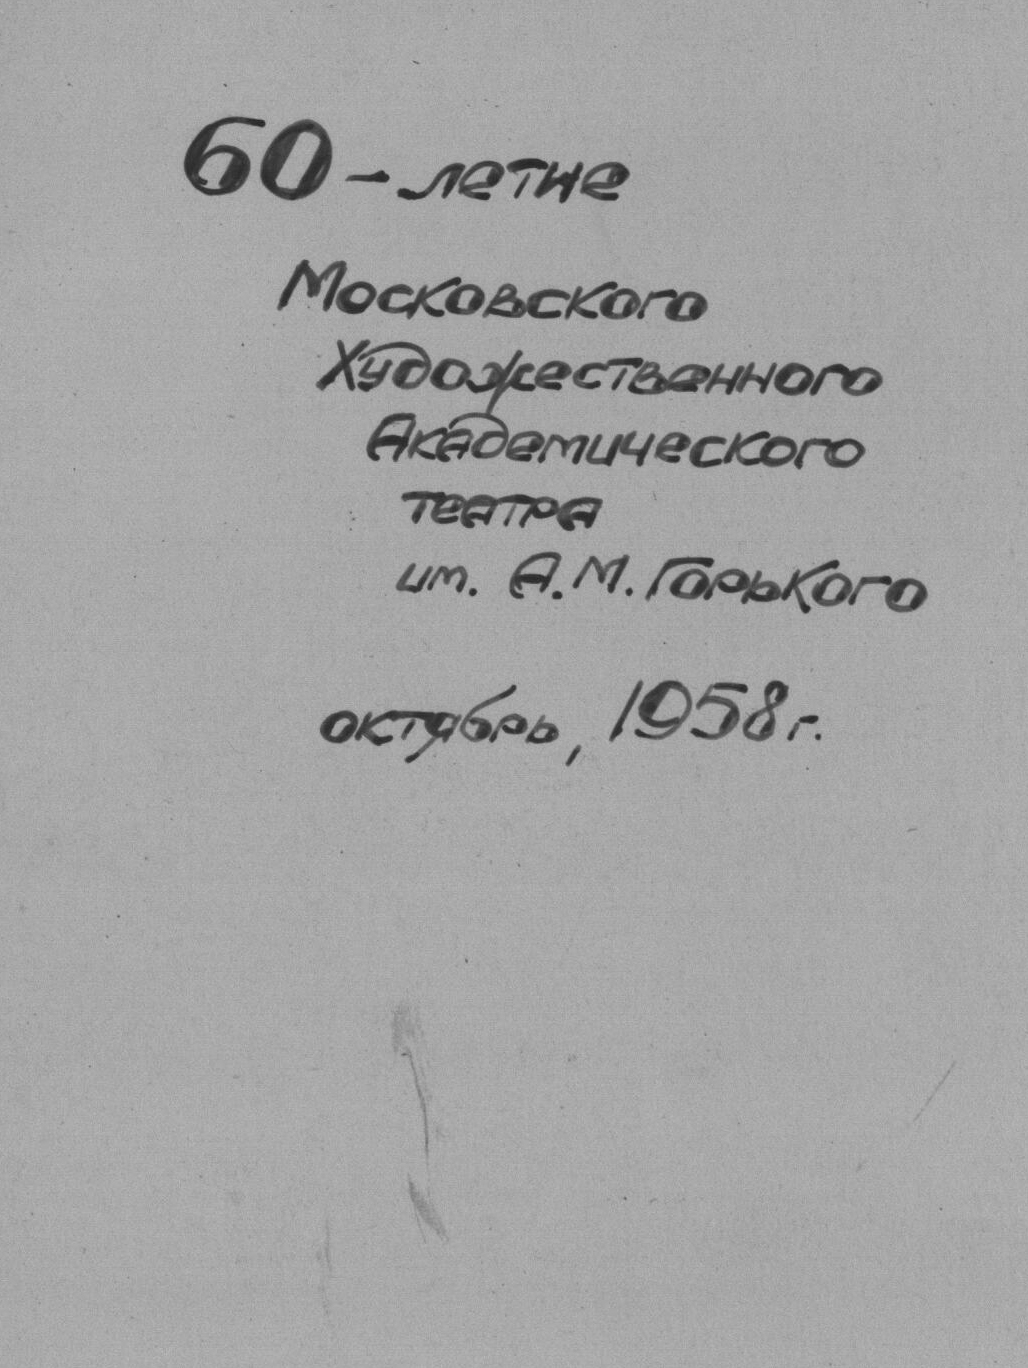 60-летие
Московского
Художественного
Академического
театра
им. А.М. Горького
октябрь, 1958 г.